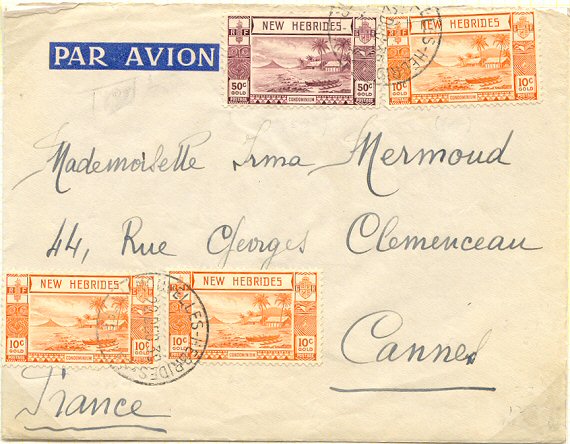 PAR AVION
NEW HEBRIDES
R F
50c GOLD
50c GOLD
CONDOMINIUM
NEW HEBRIDES
10c GOLD
10c GOLD
CONDOMINIUM
Mademoiselle Irma Mermoud
44, Rue Georges Clemenceau
NEW HEBRIDES
R F
10c GOLD
10c GOLD
CONDOMINIUM
NEW HEBRIDES
R F
10c GOLD
10c GOLD
CONDOMINIUM
ELLES-HEBRIDES
Cannes
France